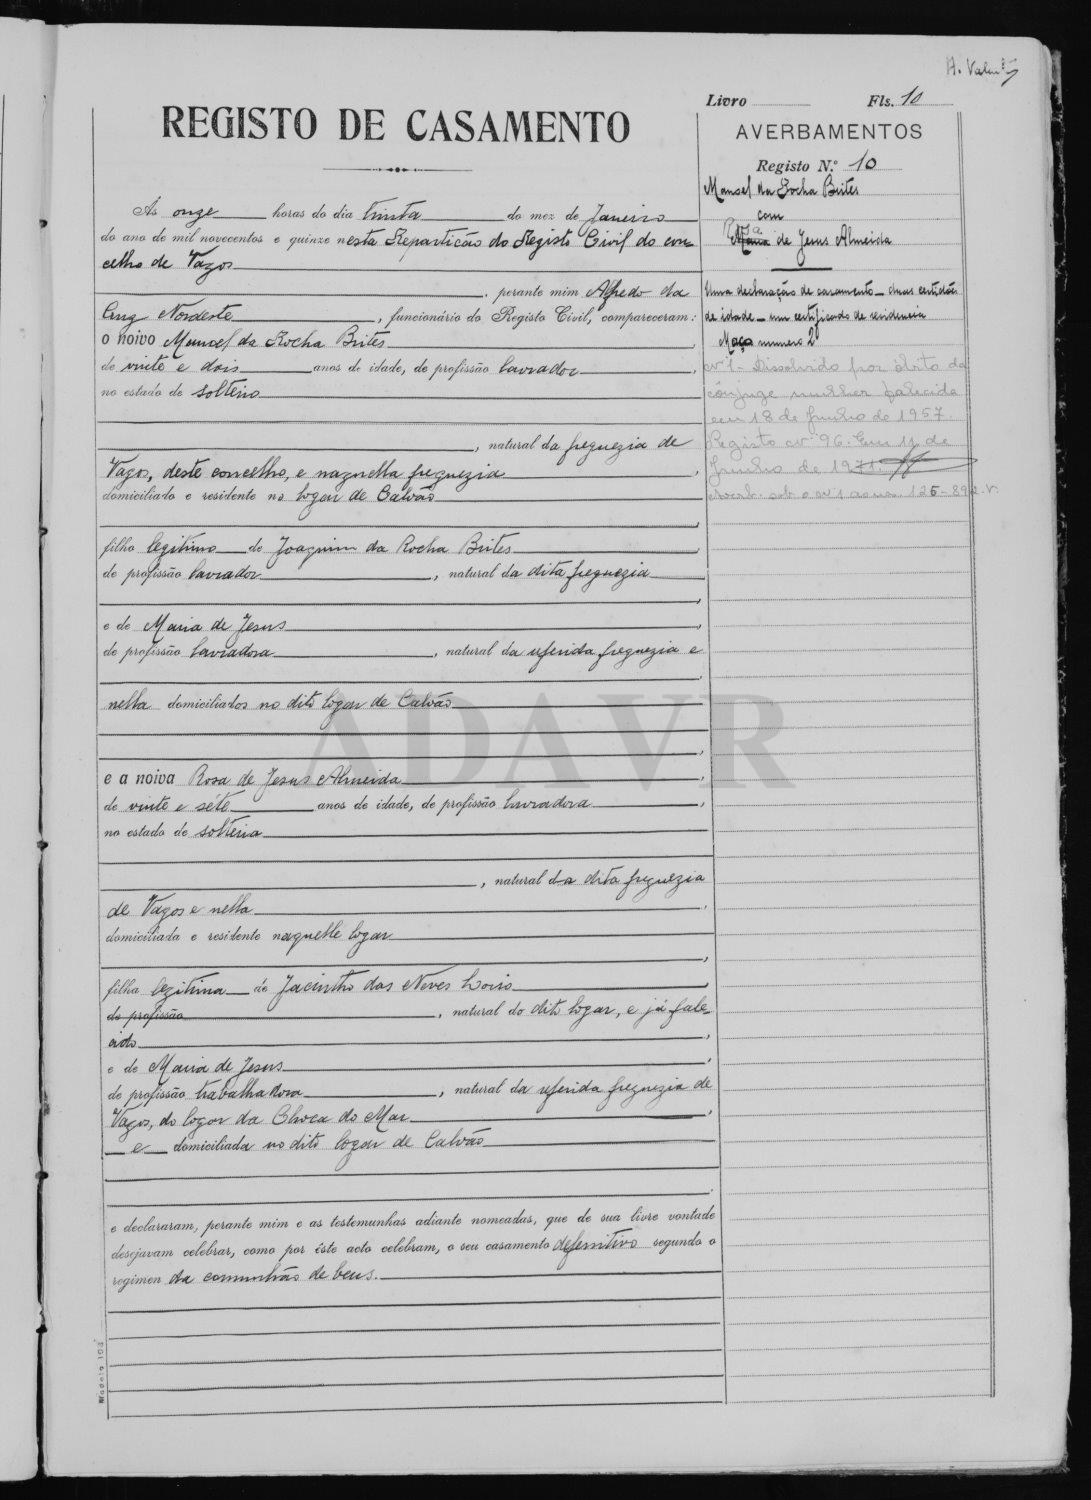 Livro Fls. 10
REGISTO DE CASAMENTO
AVERBAMENTOS
Registo N.º 10
Manoel da Rocha Brites
com
Rosa de Jesus Almeida
Uma declaração de casamento - duas certidões
de idade - um certificado de residencia
Maço numero 2
Nº 1 - Dissolvido por óbito da
cônjuge mulher falecida
em 18 de Junho de 1957.
Registo nº 96. Em 11 de
Junho de 1971.
Às onze horas do dia trinta do mez de Janeiro
do ano de mil novecentos e quinze nesta Repartição do Registo Civil do con-
celho de Vagos
, perante mim Alfredo da
Cruz Nordeste, funcionário do Registo Civil, compareceram:
o noivo Manoel da Rocha Brites
de vinte e dois anos de idade, de profissão lavrador,
no estado de solteiro
, natural da freguezia de
Vagos, deste concelho, e naquella freguezia,
domiciliado e residente no logar de Calvão
filho legitimo de Joaquim da Rocha Brites,
de profissão lavrador, natural da dita freguezia
,
e de Maria de Jesus,
de profissão lavradora, natural da referida freguezia e
,
nella domiciliados no dito logar de Calvão
,
e a noiva Rosa de Jesus Almeida,
de vinte e séte anos de idade, de profissão lavradora,
no estado de solteira
, natural da dita freguezia
de Vagos e nella,
domiciliada e residente naquelle logar
,
filha legitima de Jacintho das Neves Loiro,
de profissão, natural do dito logar, e já fale-
cido,
e de Maria de Jesus,
de profissão trabalhadora, natural da referida freguezia de
Vagos, do logar da Choca do Mar,
e domiciliada no dito logar de Calvão
.
e declararam, perante mim e as testemunhas adiante nomeadas, que de sua livre vontade
desejavam celebrar, como por êste acto celebram, o seu casamento definitivo segundo o
regimen da comunhão de bens.
ADAVR